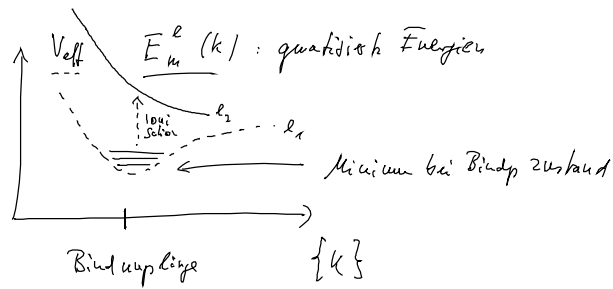 Veff
E_m^l (k) : quantisierte Energien
l₂
l₁
Minimum bei Bindgszustand
Bindungslänge
{k}